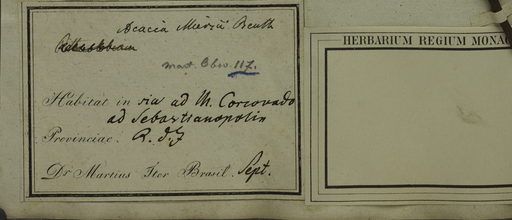 Acacia Miersii Benth
Mart. Obs. 117.
Habitat in via ad M. Corcovado
ad Sebastianopolin
Provinciae. R. d. J
Dr Martius Iter Brasil. Sept.
HERBARIUM REGIUM MONAC